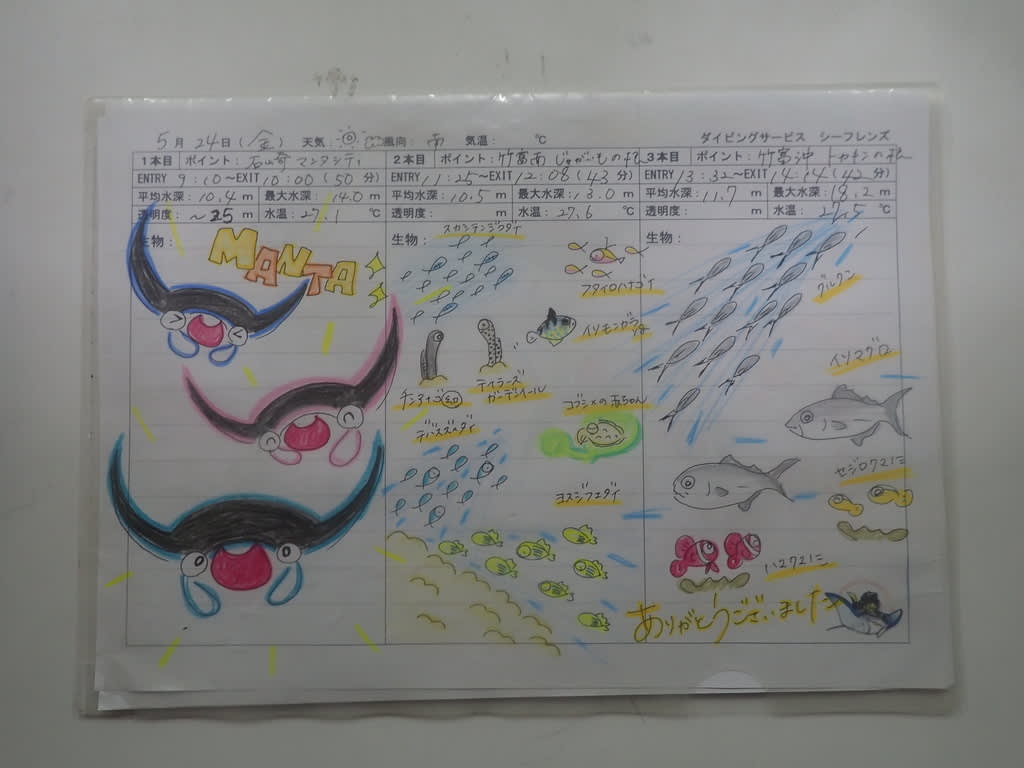 5月24日(金) 天気: 風向: 南 気温: ℃ ダイビングサービス シーフレンズ
1本目 ポイント: 石崎マンタシティ
ENTRY 9:10〜EXIT 10:00 (50分)
平均水深: 10.4 m 最大水深: 14.0 m
透明度: 〜25 m 水温: 27.1 ℃
生物:
MANTA
2本目 ポイント: 竹富南 じゃがいもの根
ENTRY 11:25〜EXIT 12:08 (43分)
平均水深: 10.5 m 最大水深: 13.0 m
透明度: m 水温: 27.6 ℃
生物:
スカシテンジクダイ
フタイロハナゴイ
イソモンガラ
チンアナゴ
テイラーズ
ガーデンイール
コブシメの赤ちゃん
デバスズメダイ
ヨスジフエダイ
3本目 ポイント: 竹富沖 トカキンの根
ENTRY 13:32〜EXIT 14:14 (42分)
平均水深: 11.7 m 最大水深: 18.2 m
透明度: m 水温: 27.5 ℃
生物:
グルクン
イソマグロ
セジロクマノミ
ハマクマノミ
ありがとうございました